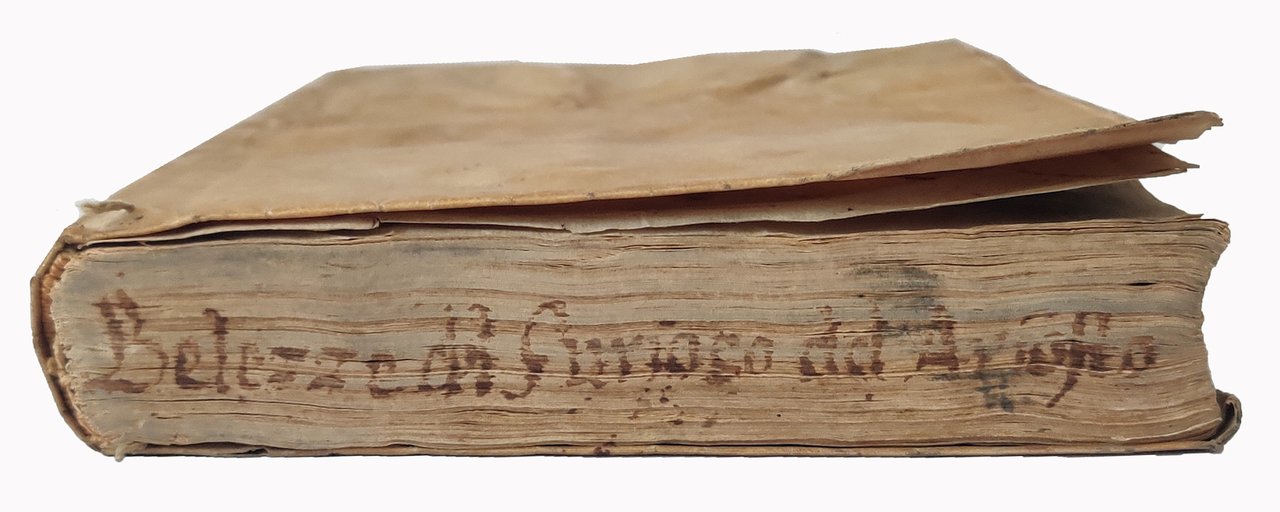 Belezze dil Furioso del Ariosto